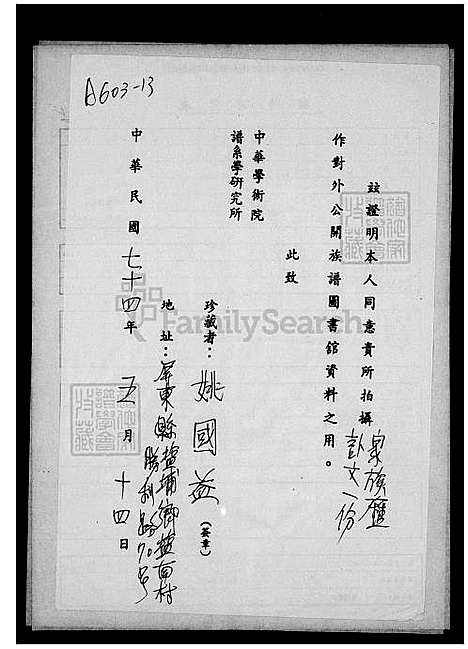 A603-13
茲證明本人同意貴所拍攝
族匯
文一份
作對外公開族譜圖書館資料之用。
此致
中華學術院
譜系學研究所
珍藏者：姚國益（簽章）
地址：屏東縣鹽埔鄉鹽南村
勝利路70号
中華民國七十四年五月十四日
FamilySearch